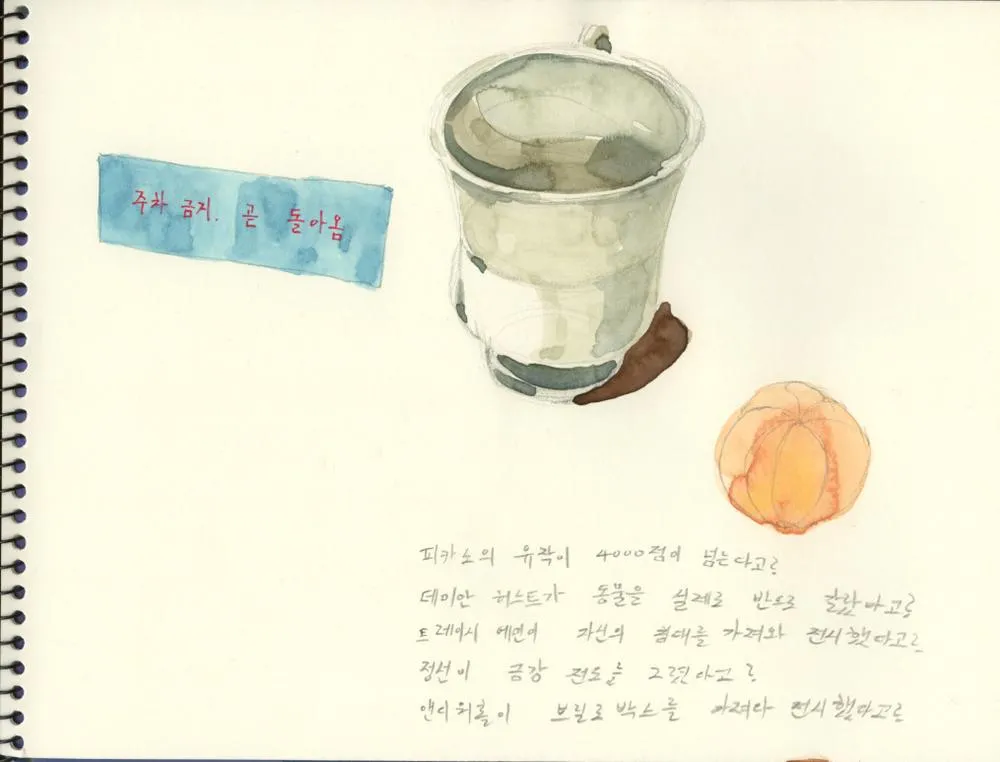 주차 금지. 곧 돌아옴
피카소의 유작이 4000점이 넘는다고?
데미안 허스트가 동물을 실제로 반으로 잘랐다고?
트레이시 에민이 자신의 침대를 가져와 전시했다고?
정선이 금강전도를 그렸다고?
앤디워홀이 브릴로 박스를 가져다 전시했다고?